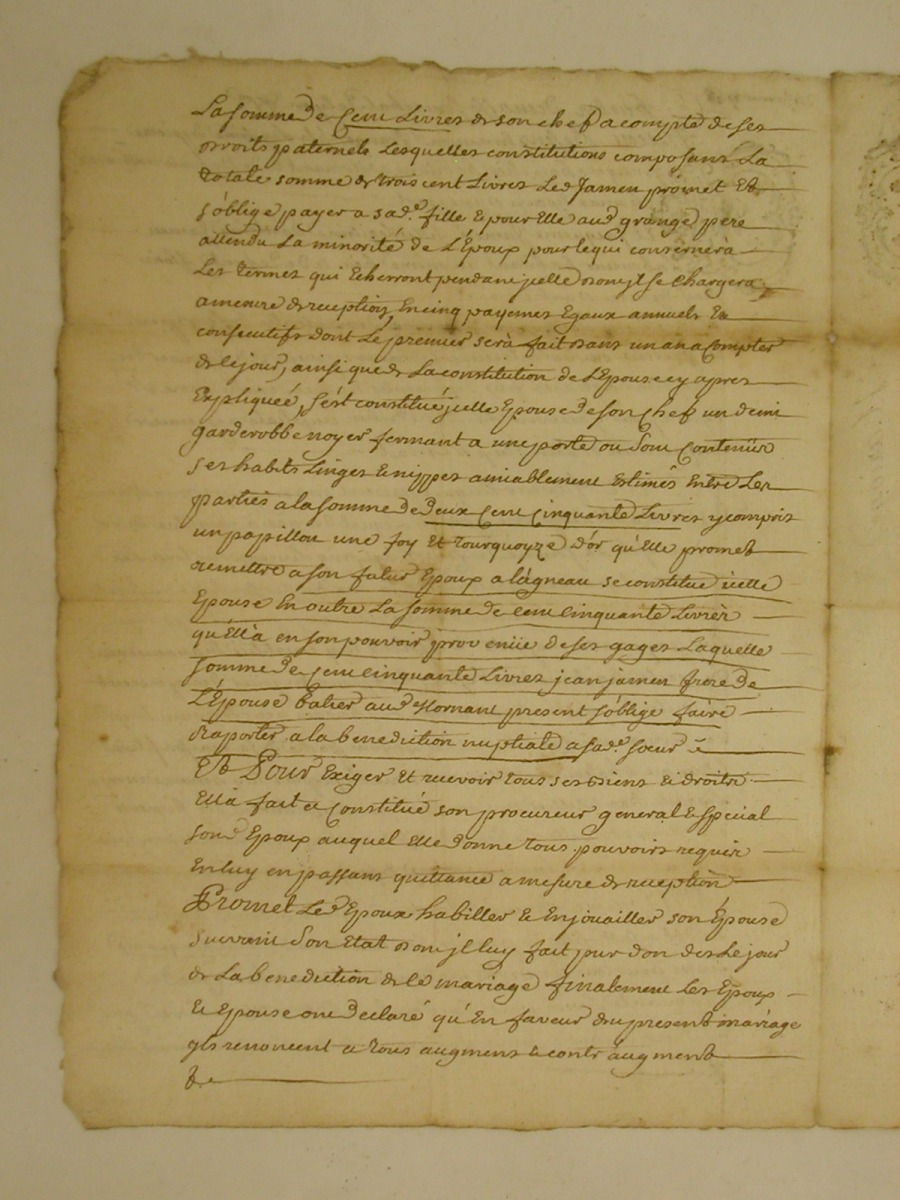 La somme de Cent Livres de son chef a compte de ses
droits paternels Lesquelles constitutions composant La
totale somme de trois cent Livres Led Jamen promet Et
s'oblige payer a sade fille & pour Elle aud grange pere
attendu La minorité de L'Époux pour lequi consernera
Les termes qui Echerront pendant jcelle dont jl se Chargera
a mesure de reception, En cinq payemes Egaux annuels Et
consecutifs dont Le premier serà fait dans un an a Compter
de ce jour, ainsi que de La constitution de L'Epouse cy apres
Expliqueé, s'est constitué jcelle Epouse de son Chef un demi
garderobbe noyer fermant a une porte ou sont Contenus
ses habits Linges & nippes amiablement Estimés Entre Les
parties a la somme de deux Cent Cinquante Livres y compris
un papillon une foy Et tourquoyze d'or qu'Elle promet
remettre a son futur Epoux a l'agneau se constitue icelle
Epouse En outre La somme de Cent Cinquante Livres
qu'Ell'à en son pouvoir provenüe de ses gages Laquelle
somme de Cent cinquante Livres jean jamen frere de
L'Épouse aud Mornant present s'oblige faire
Raporter a la benediction nuptiale a sade sœur
Et Pour Exiger Et recevoir tous ses biens & droits
Ell'à fait & Constitué son procureur general & special
sond Epoux auquel Elle donne tous pouvoirs requis
En luy en passant quittance a mesure de reception
Promet Led Epoux habiller & Enjouailler son Épouse
suivant son Etat dont jl luy fait pur don des Le jour
de La benediction de ce mariage finalement Les Epoux
& Epouse ont declaré qu'En faveur du present mariage
yls renoncent a tous augment & contr'augment
&.